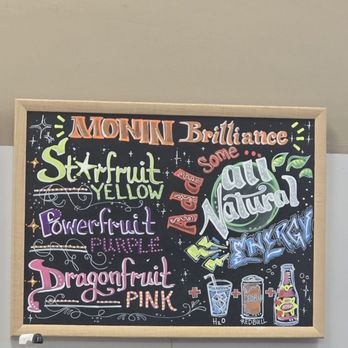 MONIN Brilliance
Starfruit
YELLOW
Powerfruit
PURPLE
Dragonfruit
PINK
Some...
all
Natural
ENERGY
+ + +
H2O
REDBULL